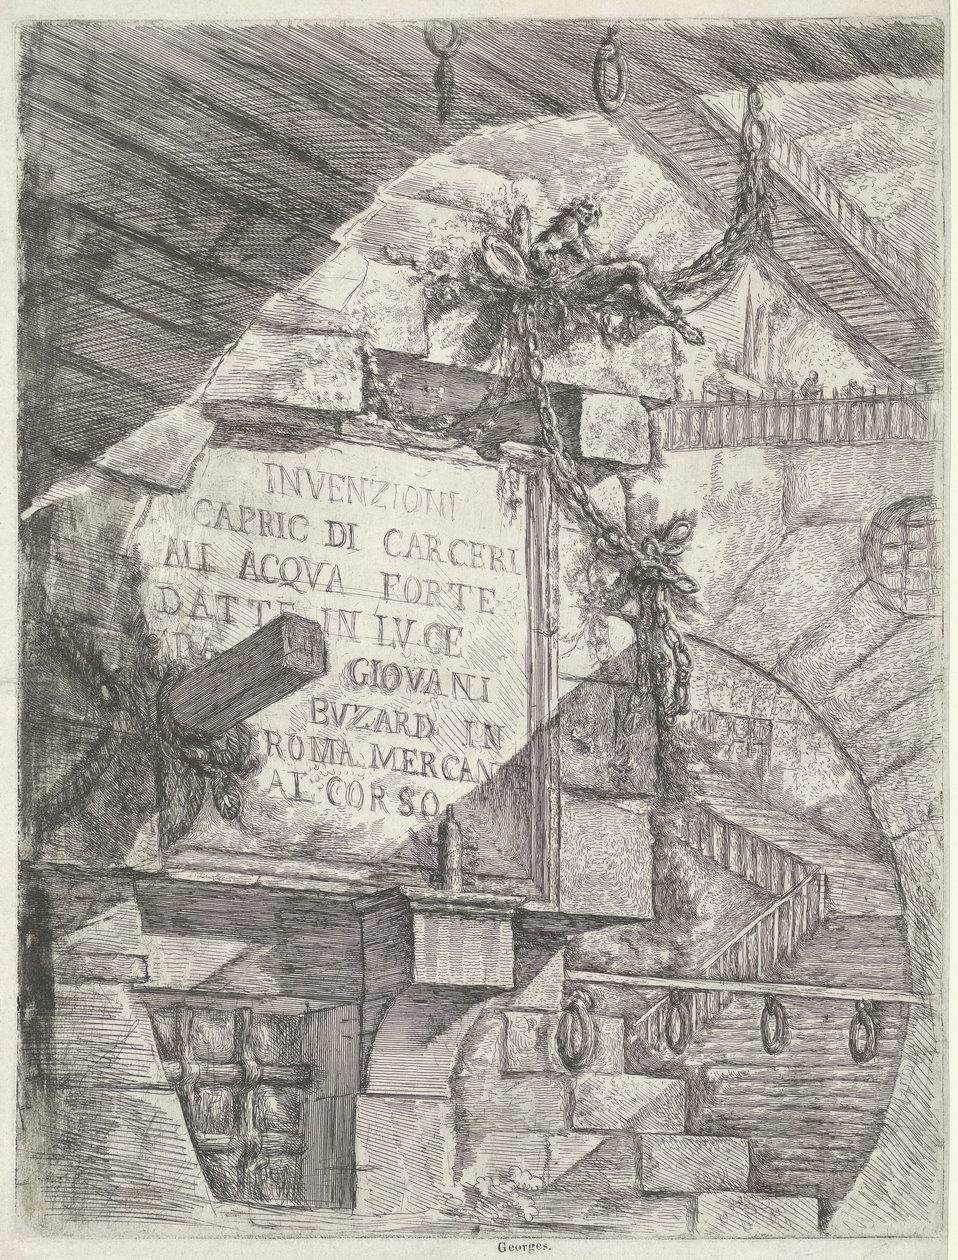 INVENZIONI
CAPRIC DI CARCERI
ALL ACQVA FORTE
DATTE IN LVCE
GIOVANI
BVZARD IN
ROMA MERCAN
AL CORSO
Georges.